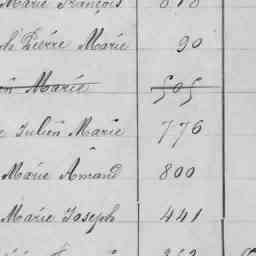 Marie François 818
de Pierre Marie 90
Marie 505
Julien Marie 776
Marie Amand 800
Marie Joseph 441